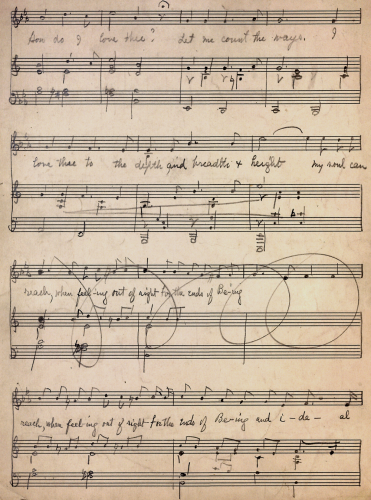 How do I love thee? Let me count the ways. I
love thee to the depth and breadth & height my soul can
reach, when feel-ing out of sight for the ends of Be-ing
reach, when feel-ing out of sight for the ends of Be-ing and i-de-al